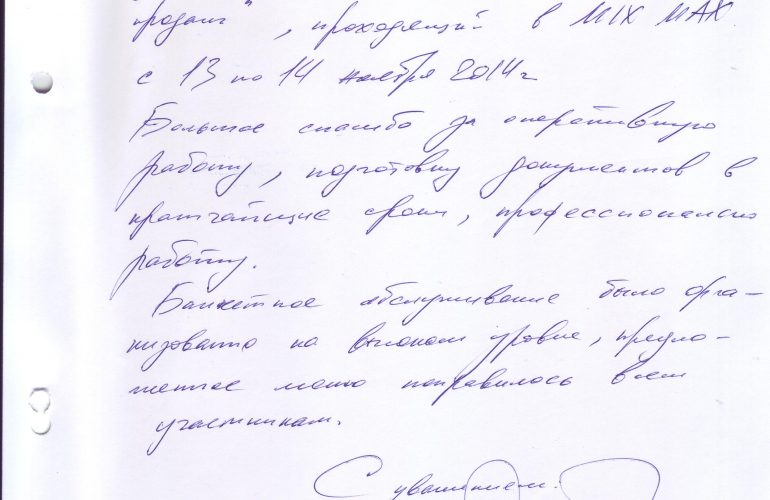 продаж", проходящий в MIX MAX
с 13 по 14 ноября 2014г
Большое спасибо за оперативную
работу, подготовку документов в
кратчайшие сроки, профессиональную
работу.
Банкетное обслуживание было орга-
низовано на высоком уровне, предло-
женное меню понравилось всем
участникам.
С уважением.